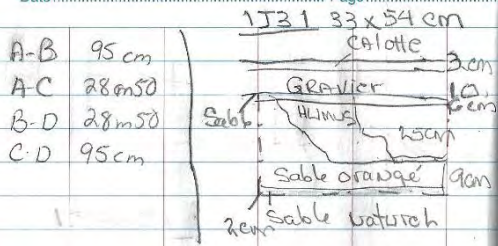 1J31 33 x 54 cm
A-B 95 cm
A-C 28m50
B-D 28m50
C-D 95 cm
CAlotte
3cm
GRAVier
10,
6cm
Sable
HUMUS
25cm
Sable orangé
9cm
2cm
Sable naturel